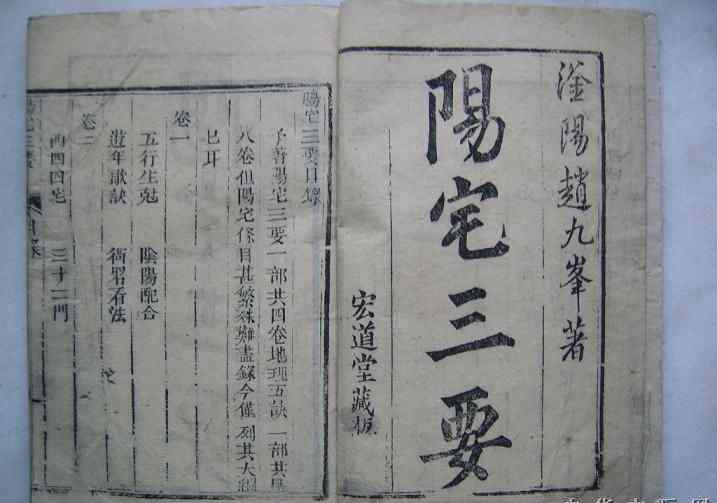 滏陽趙九峯著
陽宅三要
宏道堂藏板
陽宅三要目錄
予著陽宅三要一部共四卷地理五訣一部共
八卷但陽宅條目甚繁殊難盡錄今僅列其大綱
已耳
卷一
五行生剋 陰陽配合
遊年歌訣 衙署看法
卷二
西四四宅 三十二門
陽宅三要 目錄